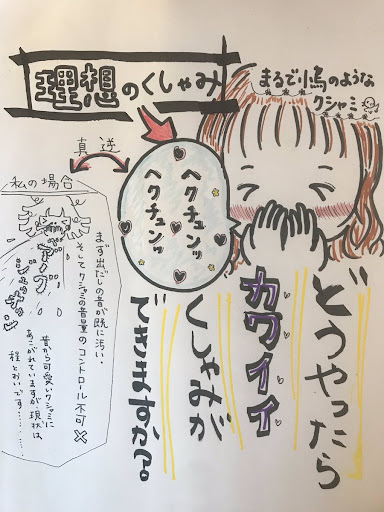 理想のくしゃみ
まるで小鳥のような
クシャミ
真逆
ヘクチュンッ
ヘクチュンッ
どうやったら
カワイイ
くしゃみが
できますか?。
私の場合
まず出だしの音が既に汚い。
そしてクシャミの音量のコントロール不可
昔から可愛いクシャミに
あこがれていますが現状は
程とおいです………